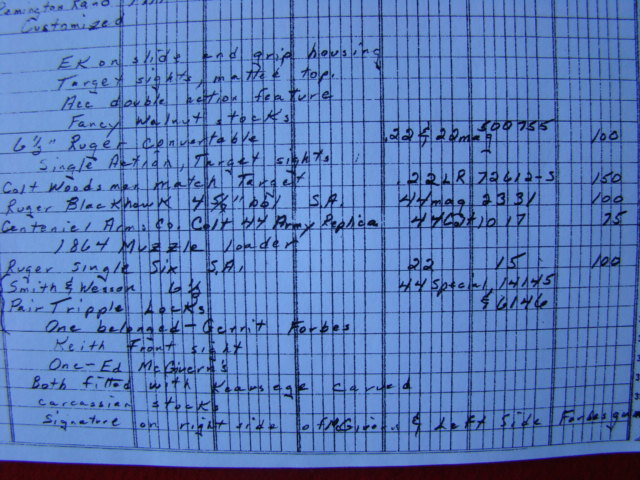 Remington Rand
Customized
EK on slide and grip housing
Target sights, matted top.
Acc double action feature
Fancy Walnut stocks
6 1/2" Ruger Convertable .22 & 22 mag 500755 100
Single Action, Target sights
Colt Woodsman match Target .22 LR 72612-S 150
Ruger Blackhawk 4 5/8" bbl S.A. 44 mag 2331 100
Centeniel Arms Co. Colt 44 Army Replica 44 Cal 1017 75
1864 Muzzle loader
Ruger Single Six S.A. 22 15 100
Smith & Wesson 6 1/2 44 Special, 14145
Pair Tripple Locks & 6146
One belonged - Gerrit Forbes
Keith Front sight
One - Ed McGivern's
Both fitted with Kearsege carved
carcassian stocks
Signature on right side of McGiverns & Left Side Forbes gun